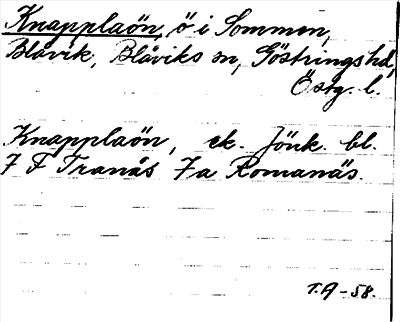 Knapplaön, ö i Sommen,
Blåvik, Blåviks sn, Göstrings hd,
Östg. l.
Knapplaön, ek. Jönk. bl.
7 F Tranås 7a Romanäs.
T.A-58.